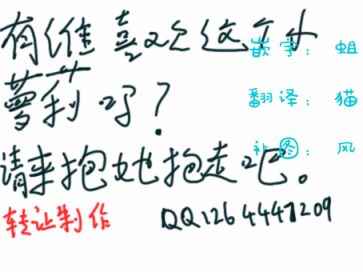 有谁喜欢这个小
萝莉吗？
请来抱她抱走吧。
转让制作 QQ1264447209
嵌字： 蛆
翻译： 猫
补图： 风